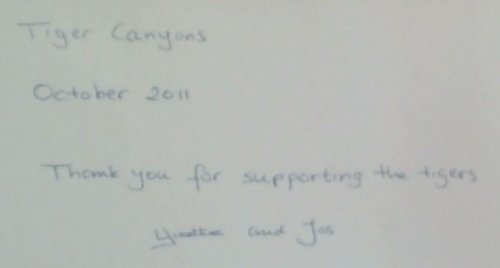 Tiger Canyons
October 2011
Thank you for supporting the tigers
and Jos